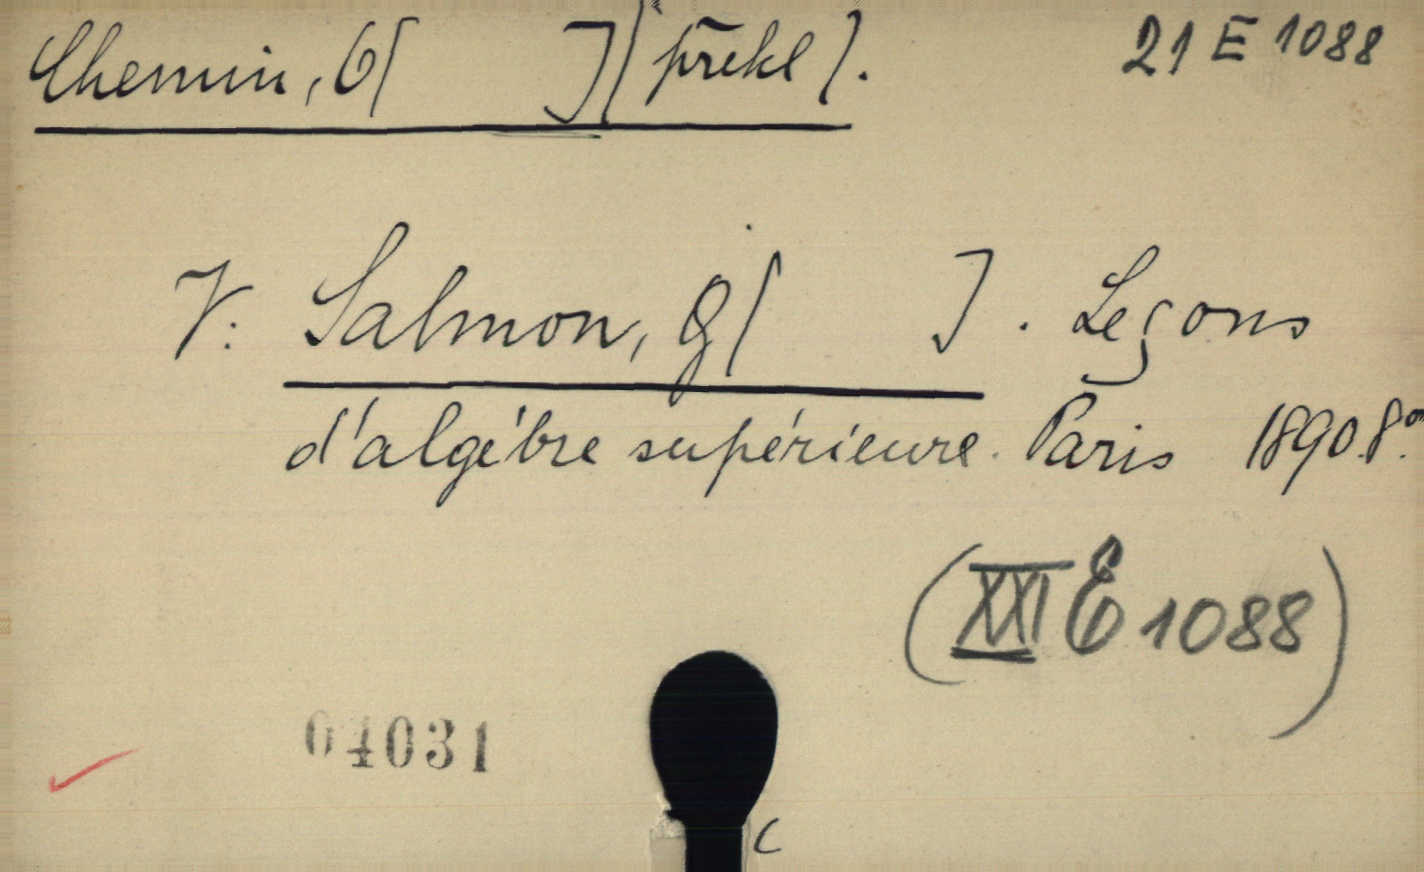 Chemin, O[ ] (překl). 21 E 1088
V: Salmon, G[ ]. Leçons
d'algébre supérieure. Paris 1890. 8°.
(XXI E 1088)
04031
C